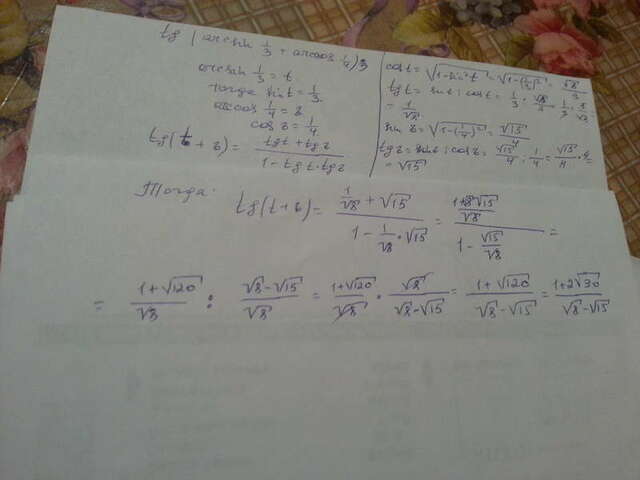 tg(arcsin 1/3 + arccos 1/4)
arcsin 1/3 = t
тогда sin t = 1/3
arccos 1/4 = z
cos z = 1/4
tg(t + z) = (tg t + tg z)/(1 - tg t · tg z)
cos t = √(1-sin² t) = √(1-(1/3)²) = √8/3
tg t = sin t : cos t = 1/3 : √8/3 = 1/3 · 3/√8 =
= 1/√8
sin z = √(1-(1/4)²) = √15/4
√15/4 : 1/4 = √15/4 · 4 =
= √15
Тогда:
tg(t+z) = (1/√8 + √15)/(1 - 1/√8 · √15) = =
= (1+√120)/√8 : (√8-√15)/√8 = (1+√120)/√8 · √8/(√8-√15) = (1+√120)/(√8-√15) = (1+2√30)/(√8-√15)